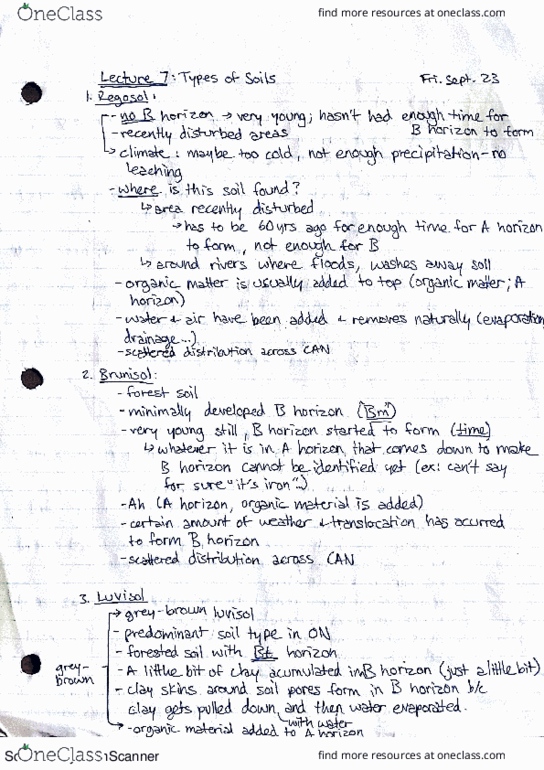 OneClass
find more resources at oneclass.com
Lecture 7: Types of Soils Fri. Sept. 23
1. Regosol:
- no B horizon → very young; hasn't had enough time for B horizon to form
- recently disturbed areas
↳ climate: maybe too cold, not enough precipitation - no
leaching
- where is this soil found?
↳ area recently disturbed
→ has to be 60 yrs ago for enough time for A horizon
to form, not enough for B
↳ around rivers where floods, washes away soil
- organic matter is usually added to top (organic mater; A
horizon)
- water & air have been added & removes naturally (evaporation
drainage...)
- scattered distribution across CAN
2. Brunisol:
- forest soil
- minimally developed B horizon (Bm)
- very young still, B horizon started to form (time)
↳ whatever it is in A horizon that comes down to make
B horizon cannot be identified yet (ex: can't say
for sure "it's iron".)
- Ah (A horizon, organic material is added)
- certain amount of weather & translocation has ocurred
to form B horizon
- scattered distribution across CAN
3. Luvisol
→ grey-brown luvisol
- predominant soil type in ON
- forested soil with Bt horizon
grey-brown
- A little bit of clay acumulated in B horizon (just a little bit)
- clay skins around soil pores form in B horizon b/c
clay gets pulled down with water and then water evaporated.
→ - organic material added to A horizon
OneClass
Scanner
find more resources at oneclass.com